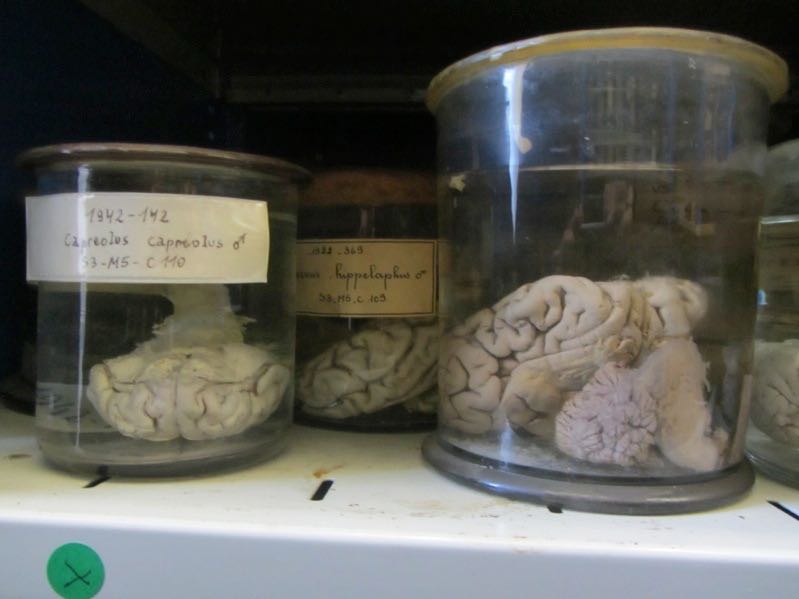 1942-142
Capreolus capreolus ♂
S3-M5-C 110
hippelaphus ♂
S3.M5.C.109